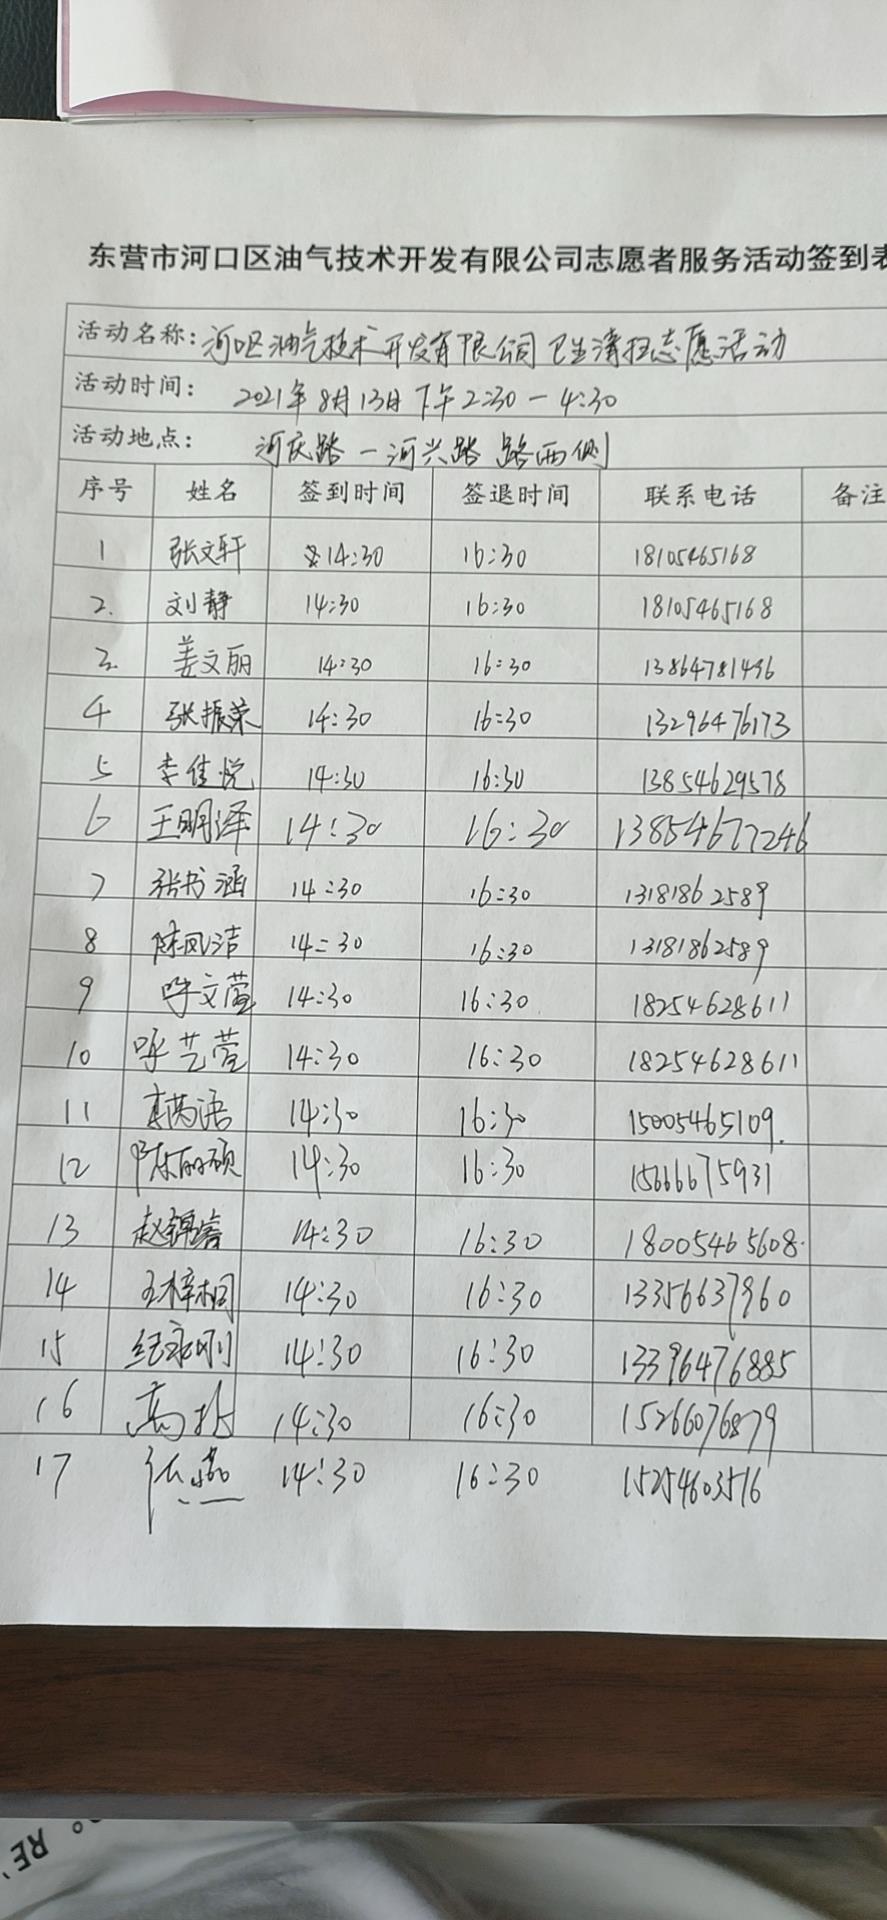 东营市河口区油气技术开发有限公司志愿者服务活动签到表
活动名称: 河口区油气技术开发有限公司卫生清扫志愿活动
活动时间: 2021年8月13日下午2:30-4:30
活动地点: 河庆路-河兴路 路西侧
序号 姓名 签到时间 签退时间 联系电话 备注
1 张文轩 14:30 16:30 18105465168
2. 刘静 14:30 16:30 18105465168
3. 姜文丽 14:30 16:30 13864781496
4 张振荣 14:30 16:30 13296476173
5 李佳悦 14:30 16:30 13854629578
6 王明泽 14:30 16:30 13854677246
7 张书涵 14:30 16:30 13181862589
8 陈凤洁 14:30 16:30 13181862589
9 呼文萱 14:30 16:30 18254628611
10 呼艺萱 14:30 16:30 18254628611
11 14:30 16:30 15005465109.
12 陈丽硕 14:30 16:30 15666675931
13 赵锦睿 14:30 16:30 18005465608.
14 王梓桐 14:30 16:30 13356637960
15 纪永刚 14:30 16:30 13396476885
16 14:30 16:30 15266076879
17 14:30 16:30 15254603516
RE